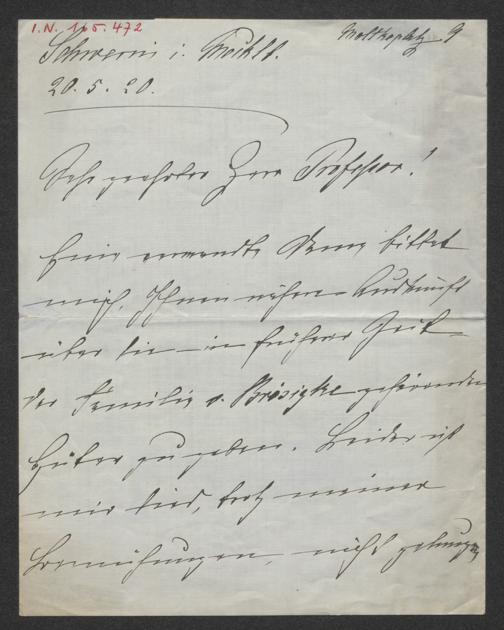 I.N. 165.472
Moltkeplatz 9
Schwerin i. Meckl.
20. 5. 20.
Sehr geehrter Herr Professor!
Eine verwandte Dame bittet
mich, Ihnen nähere Auskunft
über die – in früherer Zeit –
der Familie v. Brösigke gehörenden
Güter zu geben. Leider ist
mir dies, trotz meiner
Bemühungen, nicht gelungen,